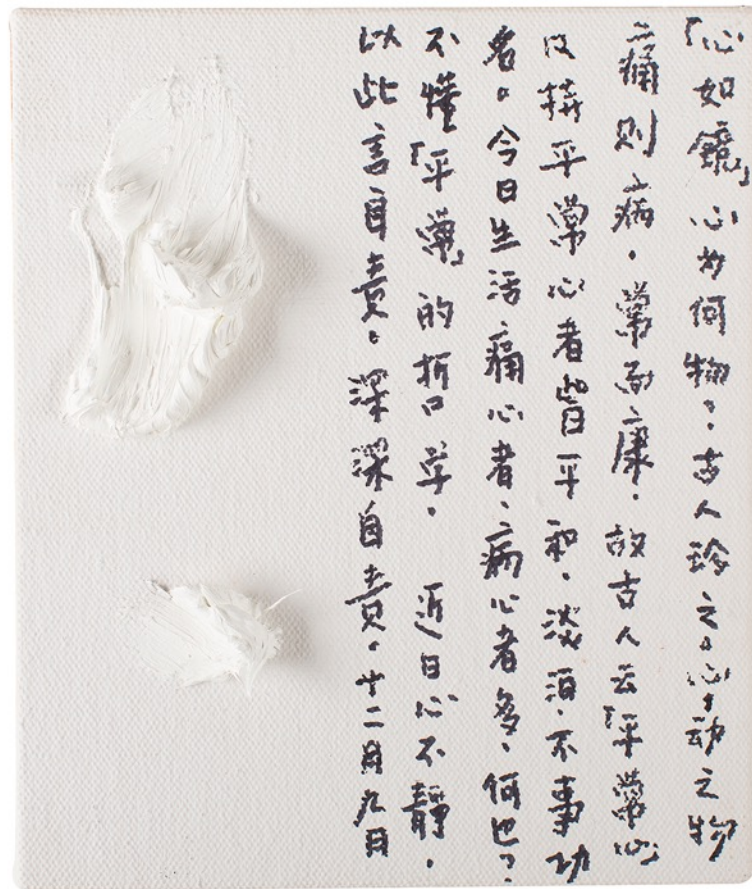 「心如鏡」心为何物?古人之。心动之物
痛则病。常而康。故古人云「平常心」
持平常心者皆平和、淡泊、不事功
名。今日生活痛心者、病心者多、何也?
不懂「平常」的哲学。 近日心不靜。
以此言自责。深深自责。十二月九日